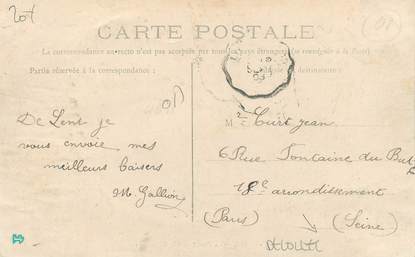 CARTE POSTALE
La correspondance au recto n'est pas acceptée par tous les pays étrangers (se renseigner à la Poste)
Partie réservée à la correspondance :
De Lent je
vous envoie mes
meilleurs baisers
M Gallion
M Curt jean
6 Rue Fontaine du But
18e arrondissement
(Paris)
(Seine)